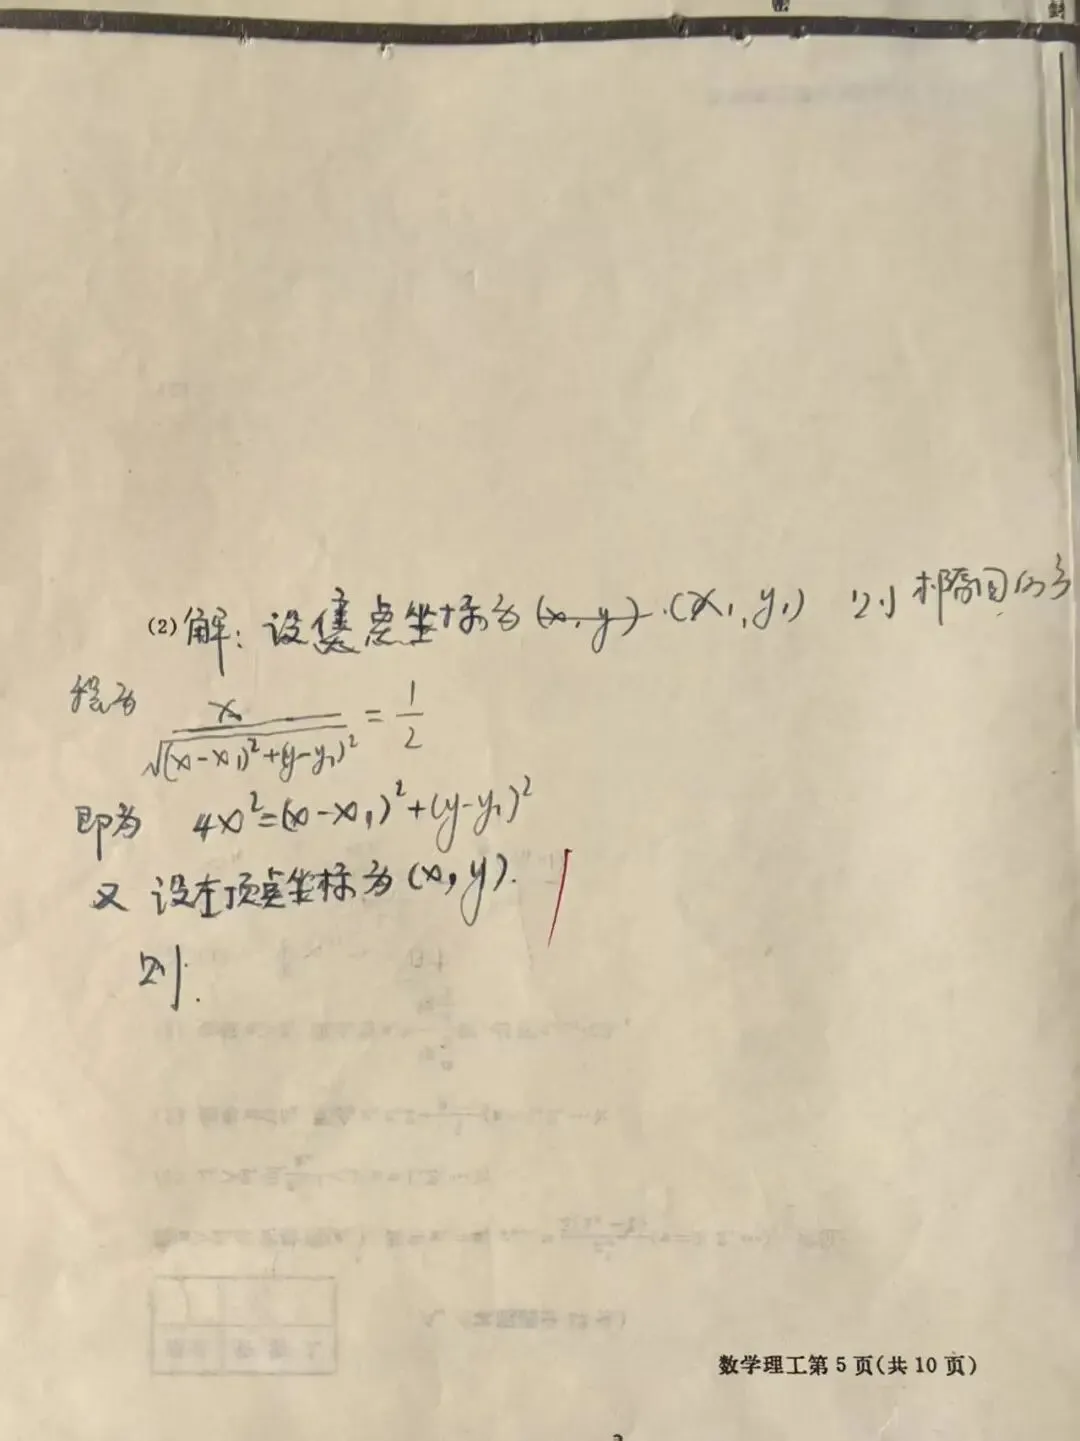 密
封
(2)解:设焦点坐标为(x,y).(x₁,y₁) 则椭圆的方
程为 x/√((x-x₁)²+(y-y₁)²) = 1/2
即为 4x²=(x-x₁)²+(y-y₁)²
又 设左顶点坐标为(x,y).
则.
数学理工第5页(共10页)